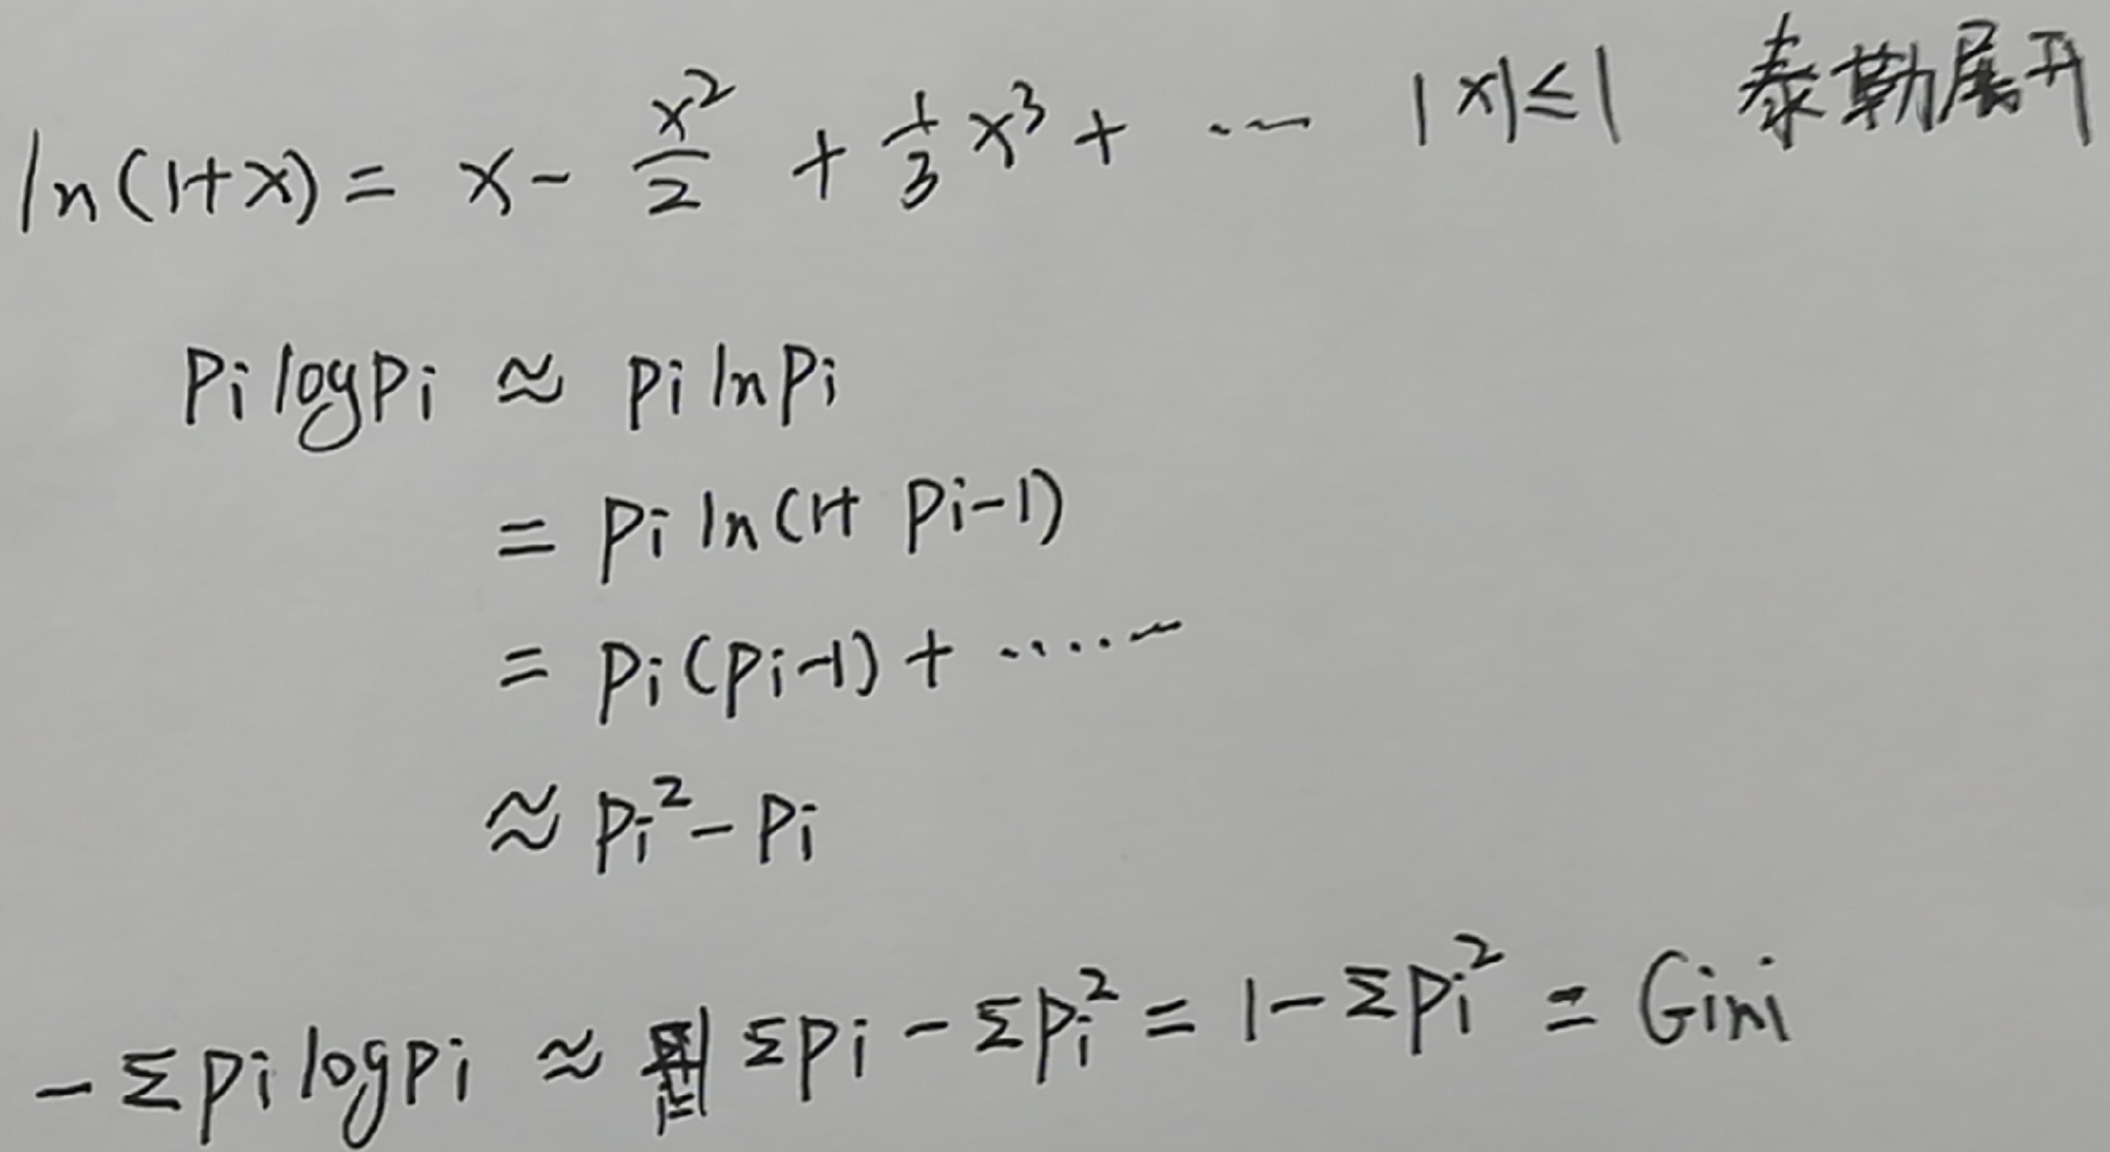 ln(1+x) = x - x²/2 + 1/3 x³ + ··· |x|≤1 泰勒展开
Pi log Pi ≈ Pi ln Pi
= Pi ln(1+ Pi-1)
= Pi(Pi-1) + ······
≈ Pi² - Pi
- Σ Pi log Pi ≈ Σ Pi - Σ Pi² = 1 - Σ Pi² = Gini